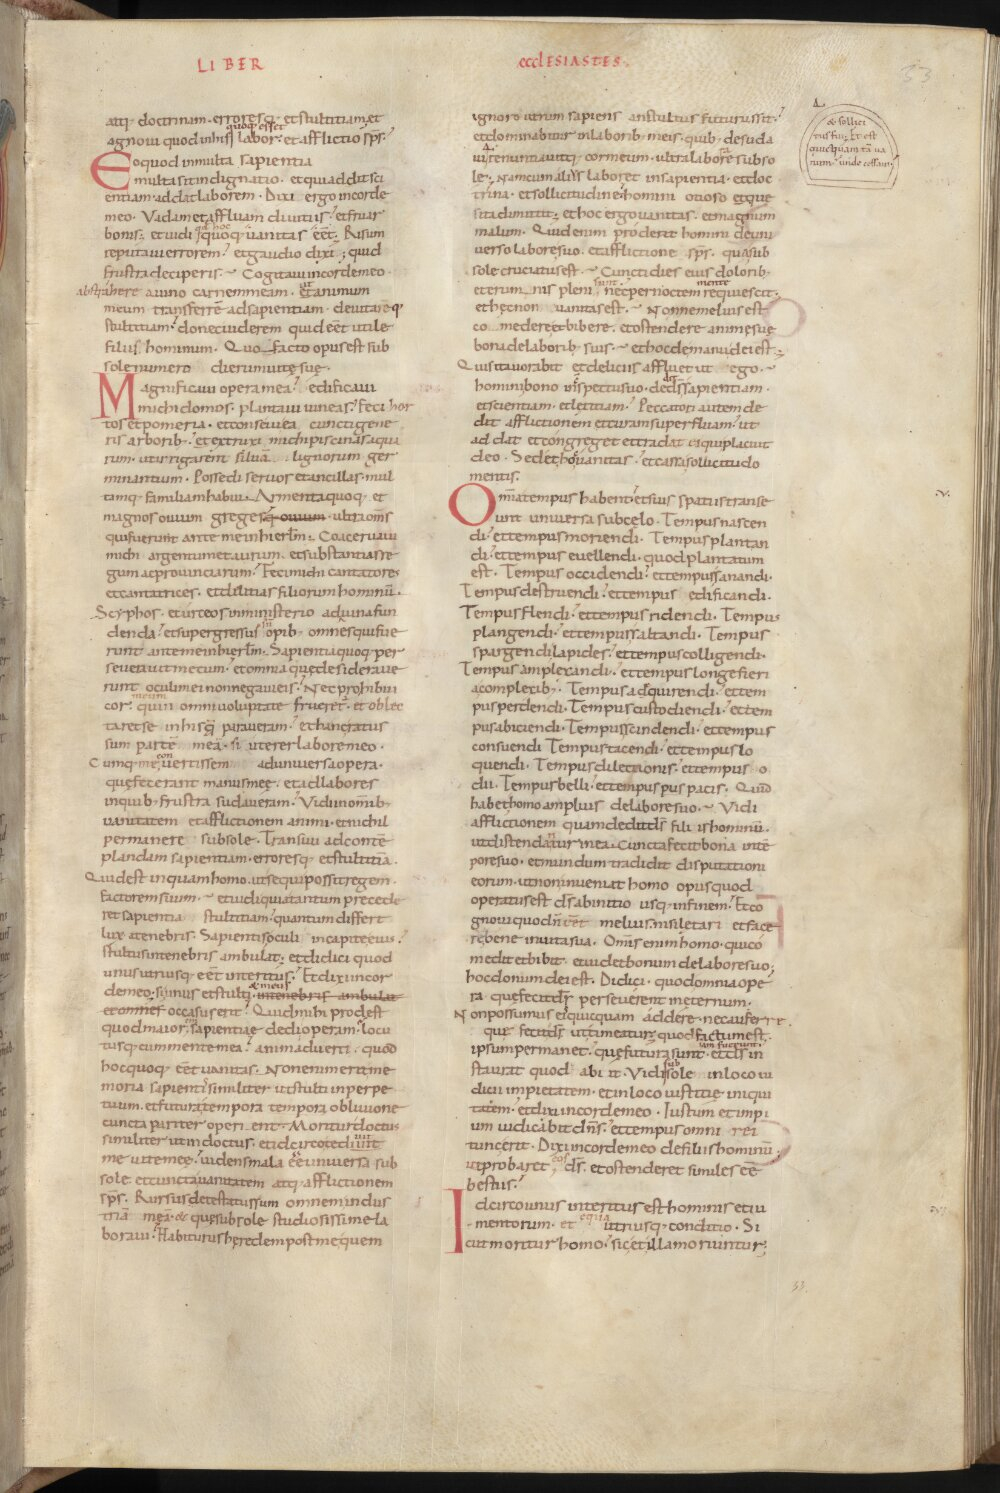 LIBER
ecclESIASTES.
33
atq; doctrinam. erroresq; et stultitiam. et
agnovi quod in hiss quoq; esset labor. et afflictio sps.
Eo quod in multa sapientia
multa sit indignatio. et qui addit sci
entiam. addat laborem. Dixi ergo in corde
meo. Vadam et affluam divitiis. et fruar
bonis; et vidi qd hoc quoq; vanitas eet; Risum
reputavi errorem. et gaudio dixi; quid
frustra deciperis. Cogitavi in corde meo
abstrahere a vino carnem meam. ut animum
meum transferre ad sapientiam. devitareq;
stultitiam. donec viderem quid eet utile
filiis hominum. Quo facto opus est sub
sole numero dierum vite sue.
Magnificavi opera mea. edificavi
michi domos. plantavi vineas. feci hor
tos et pomeria. et consevi ea cuncti gene
ris arborib. et extruxi michi piscinas aqua
rum. ut irrigarent silvā lignorum ger
minantium. Possedi servos et ancillas. mul
tamq; familiam habui. Armenta quoq; et
magnos ovium greges q ovium ultra oms
qui fuerunt ante me in hierlm. Coacervavi
michi argentum et aurum. et substantias re
gum ac provinciarum. Feci michi cantatores
et cantatrices. et delitias filiorum hominū.
Scyphos. et urceos in ministerio ad vina fun
denda. et supergressus sū opib. omnes qui fue
runt ante me in hierlm. Sapientia quoq; per
severavit mecum. et omnia que desiderave
runt oculi mei non negavi eis. Nec prohibui
cor meum quin omni voluptate frueret. et oblec
taret se in hisq; paraveram. et hanc ratus
sum partē meā. si uterer labore meo.
Cumq; me convertissem ad universa opera.
que fecerant manus mee. et ad labores
in quib; frustra sudaveram. Vidi in omib.
vanitatem et afflictionem animi. et nichil
permanere sub sole. Transivi ad contē
plandam sapientiam. erroresq; et stultitiā.
Quid est inquam homo. ut sequi possit regem.
factorem suum. et vidi quia tantum precede
ret sapientia stultitiam. quantum differt
lux a tenebris. Sapientis oculi in capite eius.
stultus in tenebris ambulat; et didici quod
unus utriusq; eet interitus. Et dixi in cor
de meo. si unus et stulti & meus in tenebris ambulat
et omnes occasus erit. Quid mihi prodest
quod maiorem sapientiae dedi operam. locu
tusq; cum mente mea. animadverti. quod
hoc quoq; eet vanitas. Non enim erit me
moria sapientis similiter ut stulti in perpe
tuum. et futura tempora tempora oblivione
cuncta pariter operient. Moritur doctus
similiter ut indoctus. et idcirco teduit
me vite mee. videns mala eē universa sub
sole et cuncta vanitatem atq; afflictionem
sps. Rursus detestatus sum omnem indus
triā meā. & que sub sole studiosissime la
boravi. Habiturus heredem post me quem
ignoro utrum sapiens an stultus futurus sit.
et dominabitur in laborib. meis. quib. desuda
vi. renuntiavitq; cor meum. ultra laborare sub so
le. Nam cum alius laboret in sapientia. et doc
trina. et sollicitudine. homini otioso et que
sita dimittit. et hoc ergo vanitas. et magnum
malum. Quid enim proderit homini de uni
verso labore suo. et afflictione sps. qua sub
sole cruciatus est. Cuncti dies eius dolorib.
et erumnis pleni sunt. nec per noctem mente requiescit.
et hec non vanitas est. Nonne melius est
comedere et bibere. et ostendere anime sue
bona de laborib. suis. et hoc de manu dei est;
Quis ita vorabit et deliciis affluet ut ego.
homini bono in spectu suo. ded ds sapientiam.
et scientiam. et letitiam. Peccatori autem de
dit afflictionem et curam superfluam. ut
addat et congreget et tradat ei qui placuit
deo. Sed et hoc vanitas. et cassa sollicitudo
mentis.
Omnia tempus habent. et suis spatiis transe
unt universa sub celo. Tempus nascen
di. et tempus moriendi. Tempus plantan
di. et tempus evellendi. quod plantatum
est. Tempus occidendi. et tempus sanandi.
Tempus destruendi. et tempus edificandi.
Tempus flendi. et tempus ridendi. Tempus
plangendi. et tempus saltandi. Tempus
spargendi lapides. et tempus colligendi.
Tempus amplexandi. et tempus longe fieri
a complexib. Tempus adquirendi. et tem
pus perdendi. Tempus custodiendi. et tem
pus abiciendi. Tempus scindendi. et tempus
consuendi Tempus tacendi. et tempus lo
quendi. Tempus dilectionis. et tempus o
dii. Tempus belli. et tempus pus pacis. Quid
habet homo amplius de labore suo. Vidi
afflictionem quam dedit ds filiis hominū.
ut distendatur in ea. Cuncta fecit bona in tē
pore suo. et mundum tradidit disputationi
eorum. ut non inveniat homo opus quod
operatus est ds ab initio usq; in finem. Et co
gnovi quod n eet melius. nisi letari et face
re bene in vita sua. Omis enim homo. qui co
medit et bibit. et videt bonum de labore suo;
hoc donum dei est. Didici. quod omnia ope
ra que fecit ds perseverent in eternum.
Non possumus eis quicquam addere. nec auferre.
que fecit ds ut timeatur. quod factum est.
ipsum permanet. que futura sunt. iam fuerunt. et ds in
staurat quod abiit. Vidi sub sole in loco iu
dicii impietatem. et in loco iustitie iniqui
tatem. et dixi in corde meo. Iustum et impi
um iudicabit dns. et tempus omni rei
tunc erit. Dixi in corde meo de filiis hominū;
ut probaret eos ds. et ostenderet similes eē
bestiis.
Idcirco unus interitus est hominis et iu
mentorum. et equa utriusq; conditio. Si
cut moritur homo. sic et illa moriuntur;
& sollici
tus fui; Et est
quicquam tā va
num. unde cessavi
V.
33.